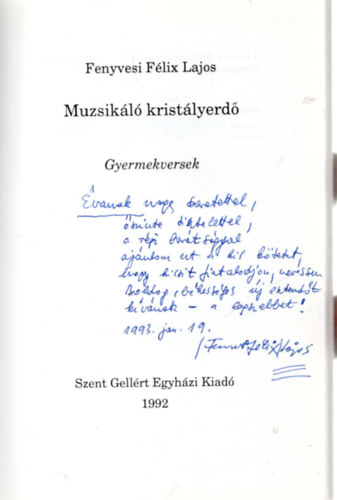 Fenyvesi Félix Lajos
Muzsikáló kristályerdő
Gyermekversek
Évának nagy szeretettel,
őszinte tisztelettel,
a régi barátsággal
ajánlom ezt a kis kötetet,
hogy kicsit fiatalodjon, nevessen
Boldog, békességes új esztendőt
kívánok – a legszebbet!
1993. jan. 19.
Fenyvesi Félix Lajos
Szent Gellért Egyházi Kiadó
1992